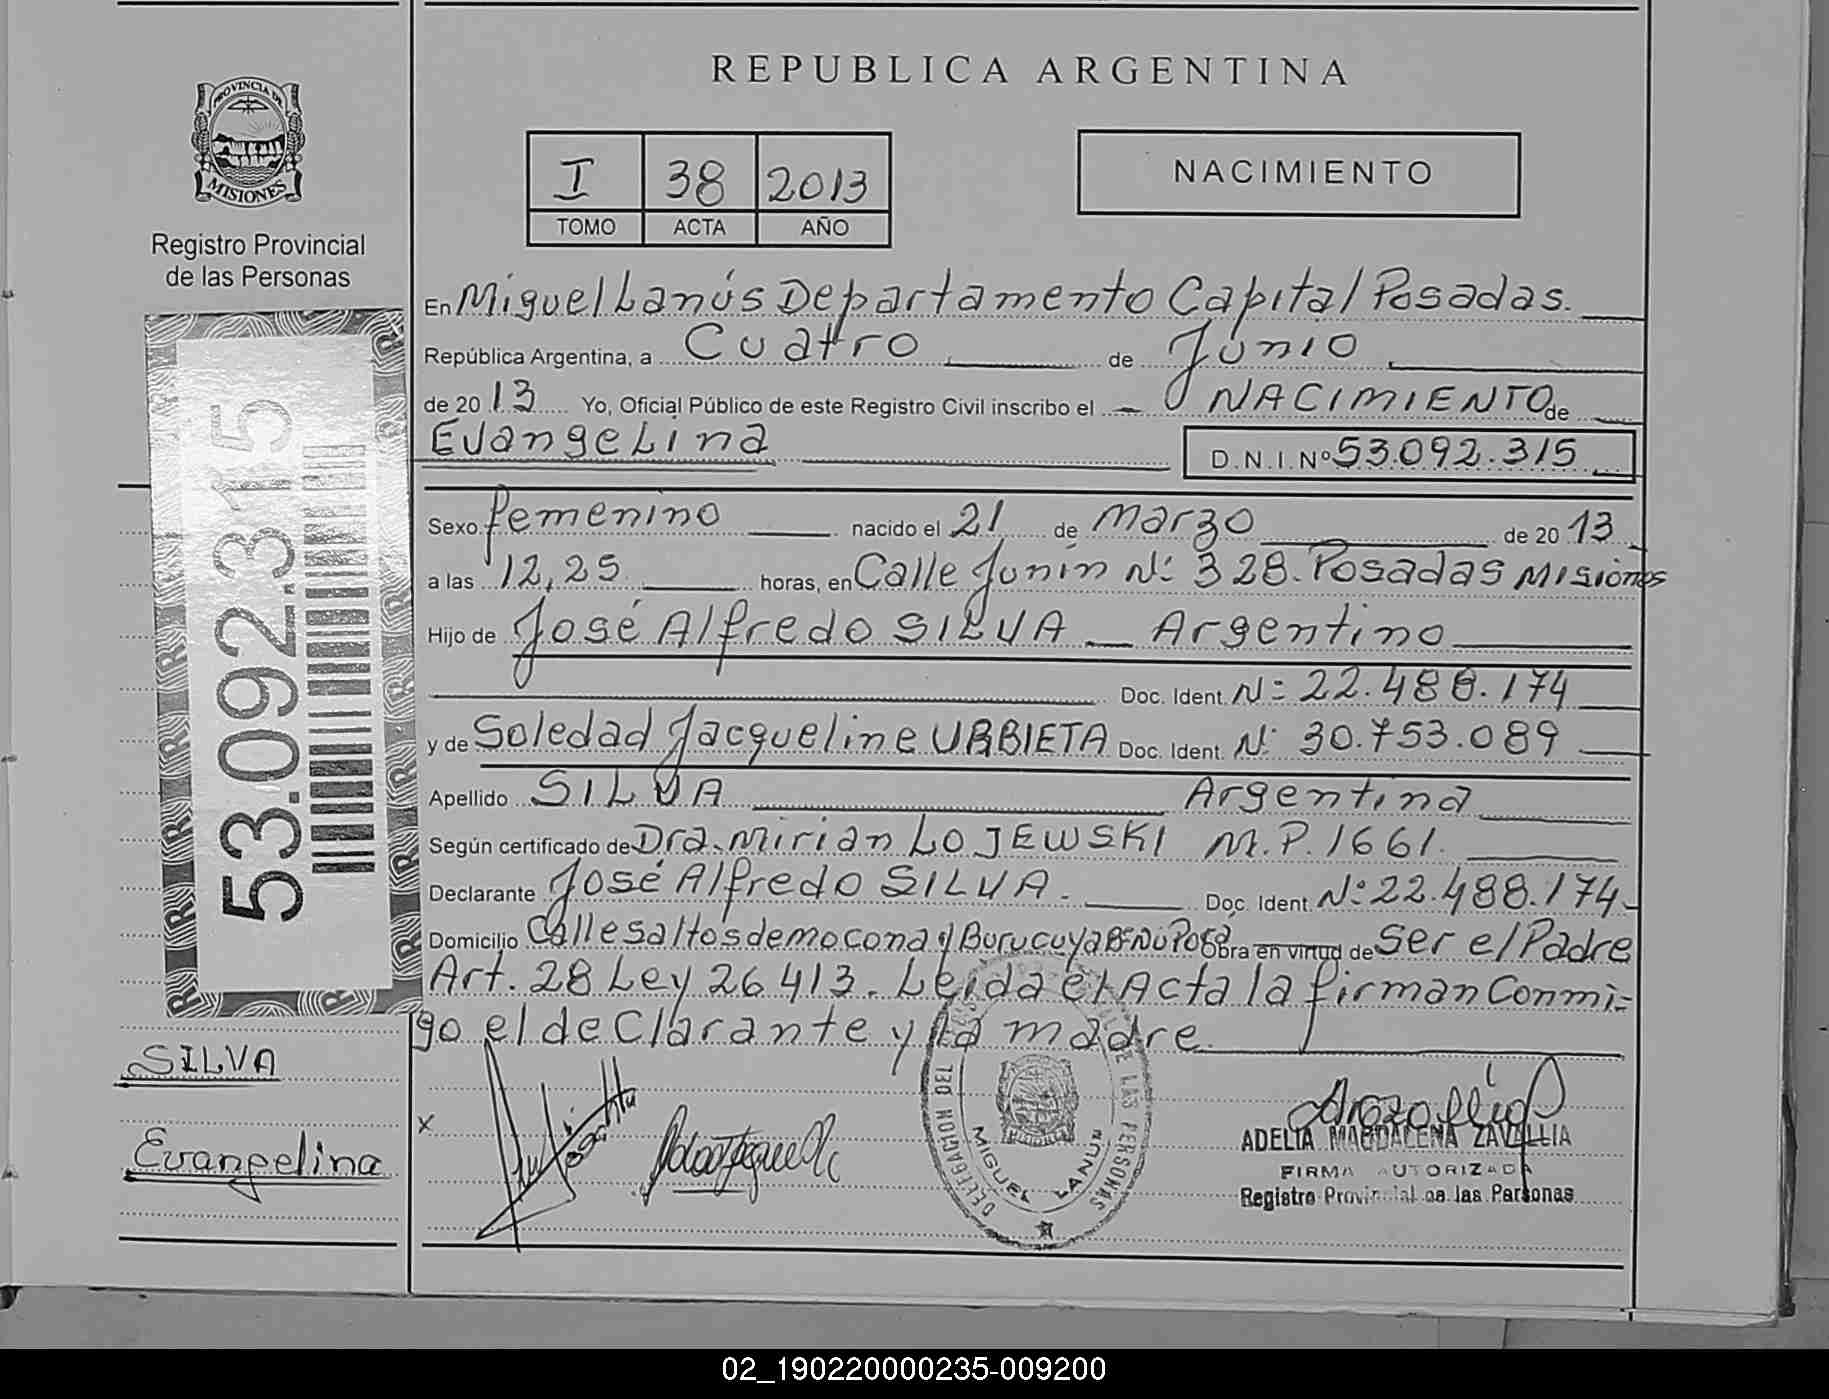 REPUBLICA ARGENTINA
PROVINCIA DE
MISIONES
Registro Provincial
de las Personas
I 38 2013
TOMO ACTA AÑO
NACIMIENTO
53.092.315
En Miguel Lanús Departamento Capital Posadas.
República Argentina, a Cuatro de Junio
de 2013 Yo, Oficial Público de este Registro Civil inscribo el NACIMIENTO de
Evangelina D.N.I. Nº 53.092.315
Sexo femenino nacido el 21 de marzo de 2013
a las 12,25 horas, en Calle Junín Nº 328. Posadas Misiones
Hijo de José Alfredo SILVA Argentino
Doc. Ident. Nº 22.488.174
y de Soledad Jacqueline URBIETA Doc. Ident. Nº 30.753.089
Apellido SILVA Argentina
Según certificado de Dra. Mirian LOJEWSKI M.P. 1661.
Declarante José Alfredo SILVA. Doc. Ident. Nº 22.488.174
Domicilio Calle Saltos de mocona y Burucuya Obra en virtud de Ser el Padre
Art. 28 Ley 26413. Leída el Acta la firman Conmi-
go el declarante y la madre
SILVA
Evangelina
X
DELEGACION DE LAS PERSONAS
MIGUEL LANUS
ADELIA MAGDALENA ZAVALLIA
FIRMA AUTORIZADA
Registro Provincial de las Personas
02_190220000235-009200